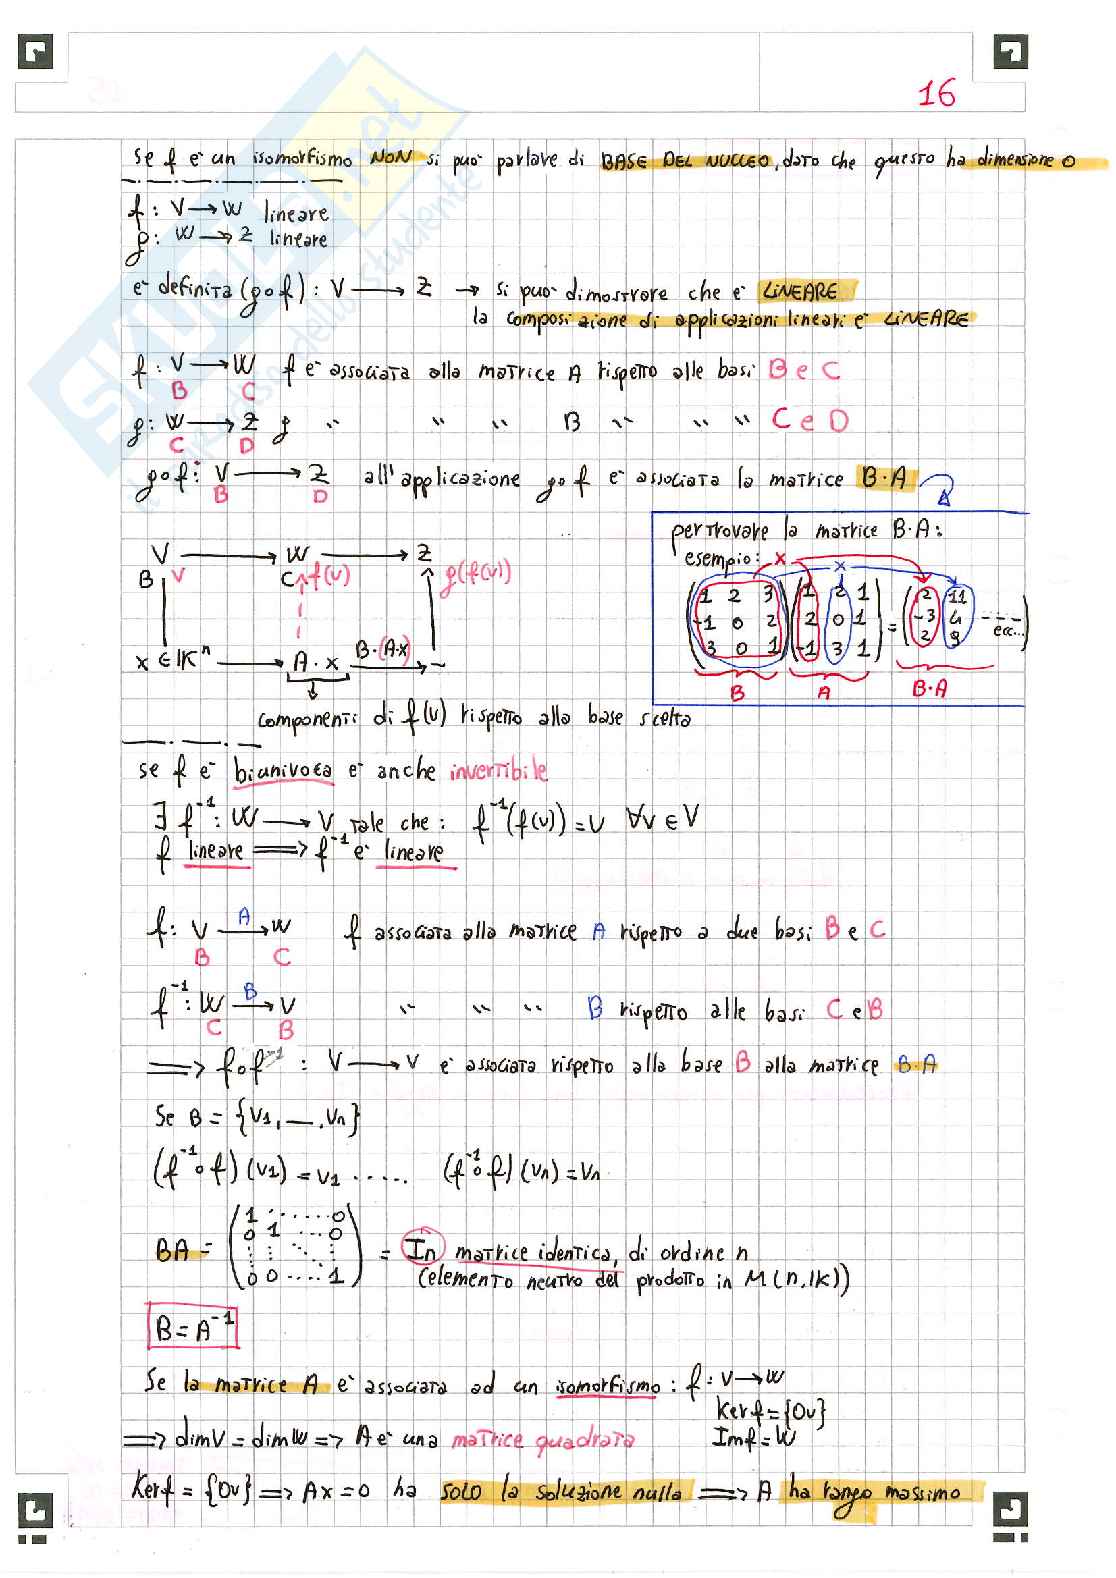 16
se f e' un isomorfismo NON si puo' parlare di BASE DEL NUCLEO, dato che questo ha dimensione 0
f: V → W lineare
g: W → Z lineare
e' definita (g∘f): V → Z → si puo' dimostrare che e' LINEARE
la composizione di applicazioni lineari e' LINEARE
f: V → W f e' associata alla matrice A rispetto alle basi B e C
B C
g: W → Z g " " " B " " " C e D
C D
g∘f: V → Z all'applicazione g∘f e' associata la matrice B·A
B D
per trovare la matrice B·A:
esempio: x x
(1 2 3) (1 2 1) = (2 11
(-1 0 2) (2 0 1) (-3 4 ---- ecc...)
(3 0 1) (-1 3 1) (2 9
B A B·A
V → W → Z
B v C f(v) g(f(v))
x ∈ IKⁿ → A·x B·(A·x) → -
componenti di f(v) rispetto alla base scelta
se f e' biunivoca e' anche invertibile
∃ f⁻¹: W → V tale che: f⁻¹(f(v)) = v ∀v ∈ V
f lineare ⟹ f⁻¹ e' lineare
f: V →A W f associata alla matrice A rispetto a due basi B e C
B C
f⁻¹: W →B V " " " B rispetto alle basi C e B
C B
⟹ f∘f⁻¹ : V → V e' associata rispetto alla base B alla matrice B·A
Se B = {v1, —, vn}
(f⁻¹∘f)(v1) = v1 ...... (f⁻¹∘f)(vn) = vn
BA = (1 ...... 0
0 1 ... 0
0 0 .... 1) = In matrice identica, di ordine n
(elemento neutro del prodotto in M(n,IK))
B = A⁻¹
Se la matrice A e' associata ad un isomorfismo: f: V → W
Ker f = {0v}
⟹ dimV = dimW ⟹ A e' una matrice quadrata Imf = W
Kerf = {0v} ⟹ Ax = 0 ha solo la soluzione nulla ⟹ A ha rango massimo
SKUOLA.net
il paradiso dello studente